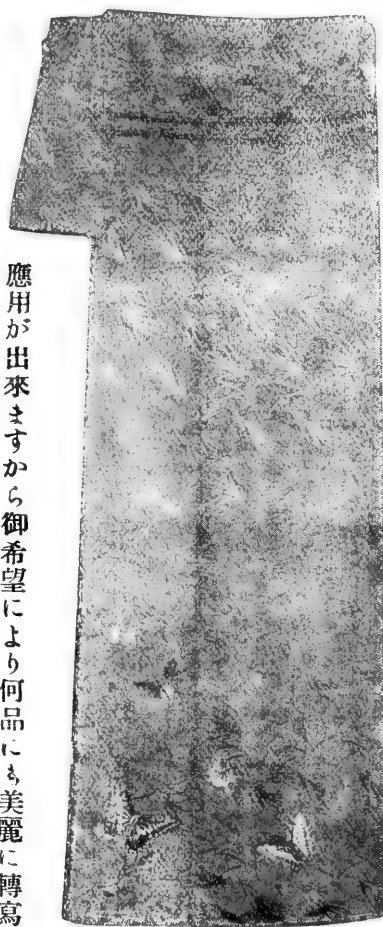 應用が出來ますから御希望により何品にも美麗に轉寫